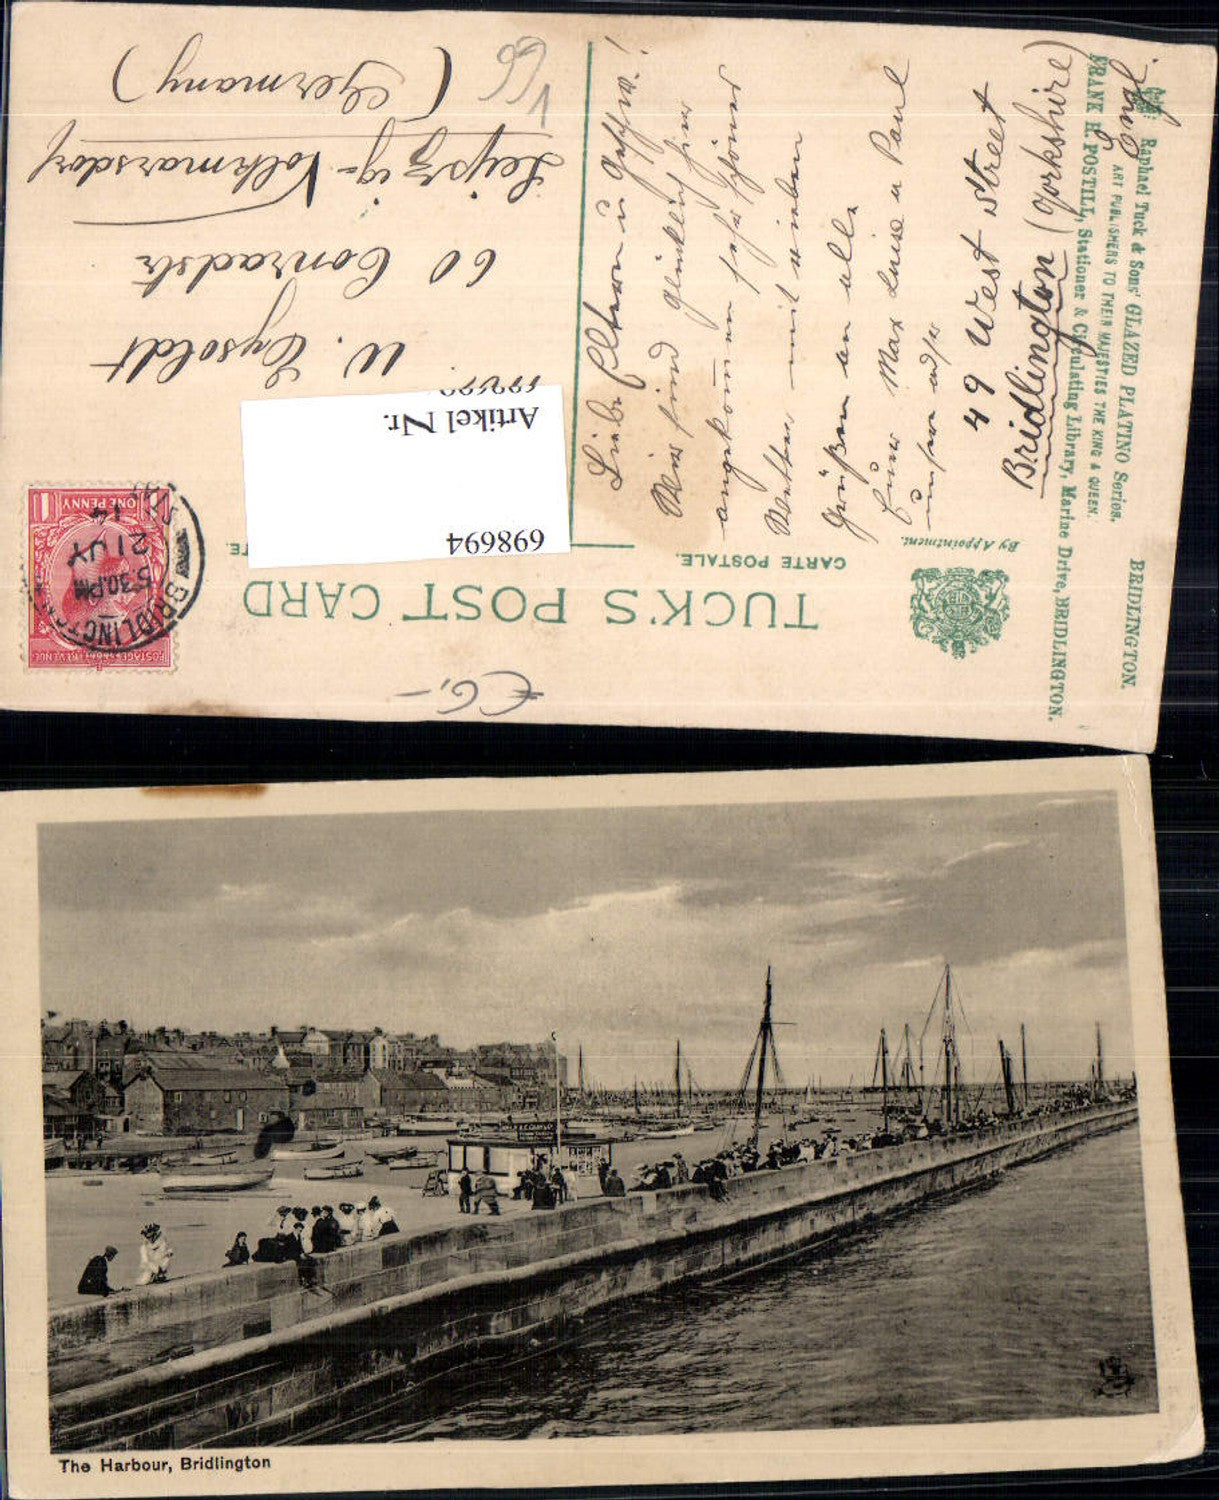 Raphael Tuck & Sons' GLAZED PLATINO Series.
BRIDLINGTON.
ART PUBLISHERS TO THEIR MAJESTIES THE KING & QUEEN.
FRANK H. POSTILL, Stationer & Circulating Library, Marine Drive, BRIDLINGTON.
By Appointment.
TUCK'S POST CARD
CARTE POSTALE.
BRIDLINGTON
5.30 PM
21 JY
14
POSTAGE REVENUE
ONE PENNY
1 1
698694
Artikel Nr.
€ 6,-
W. Eysoldt
60 Conradstr
Leipzig-Volkmarsdorf
(Germany)
Liebe Eltern u Geschw.!
Wir sind glücklich hier
angekommen sehr schöner
Wetter mit vielen
Grüßen an alle
Euer Max Luise u Paul
unsere adr
49 West Street
Bridlington (Yorkshire)
Engl.
The Harbour, Bridlington